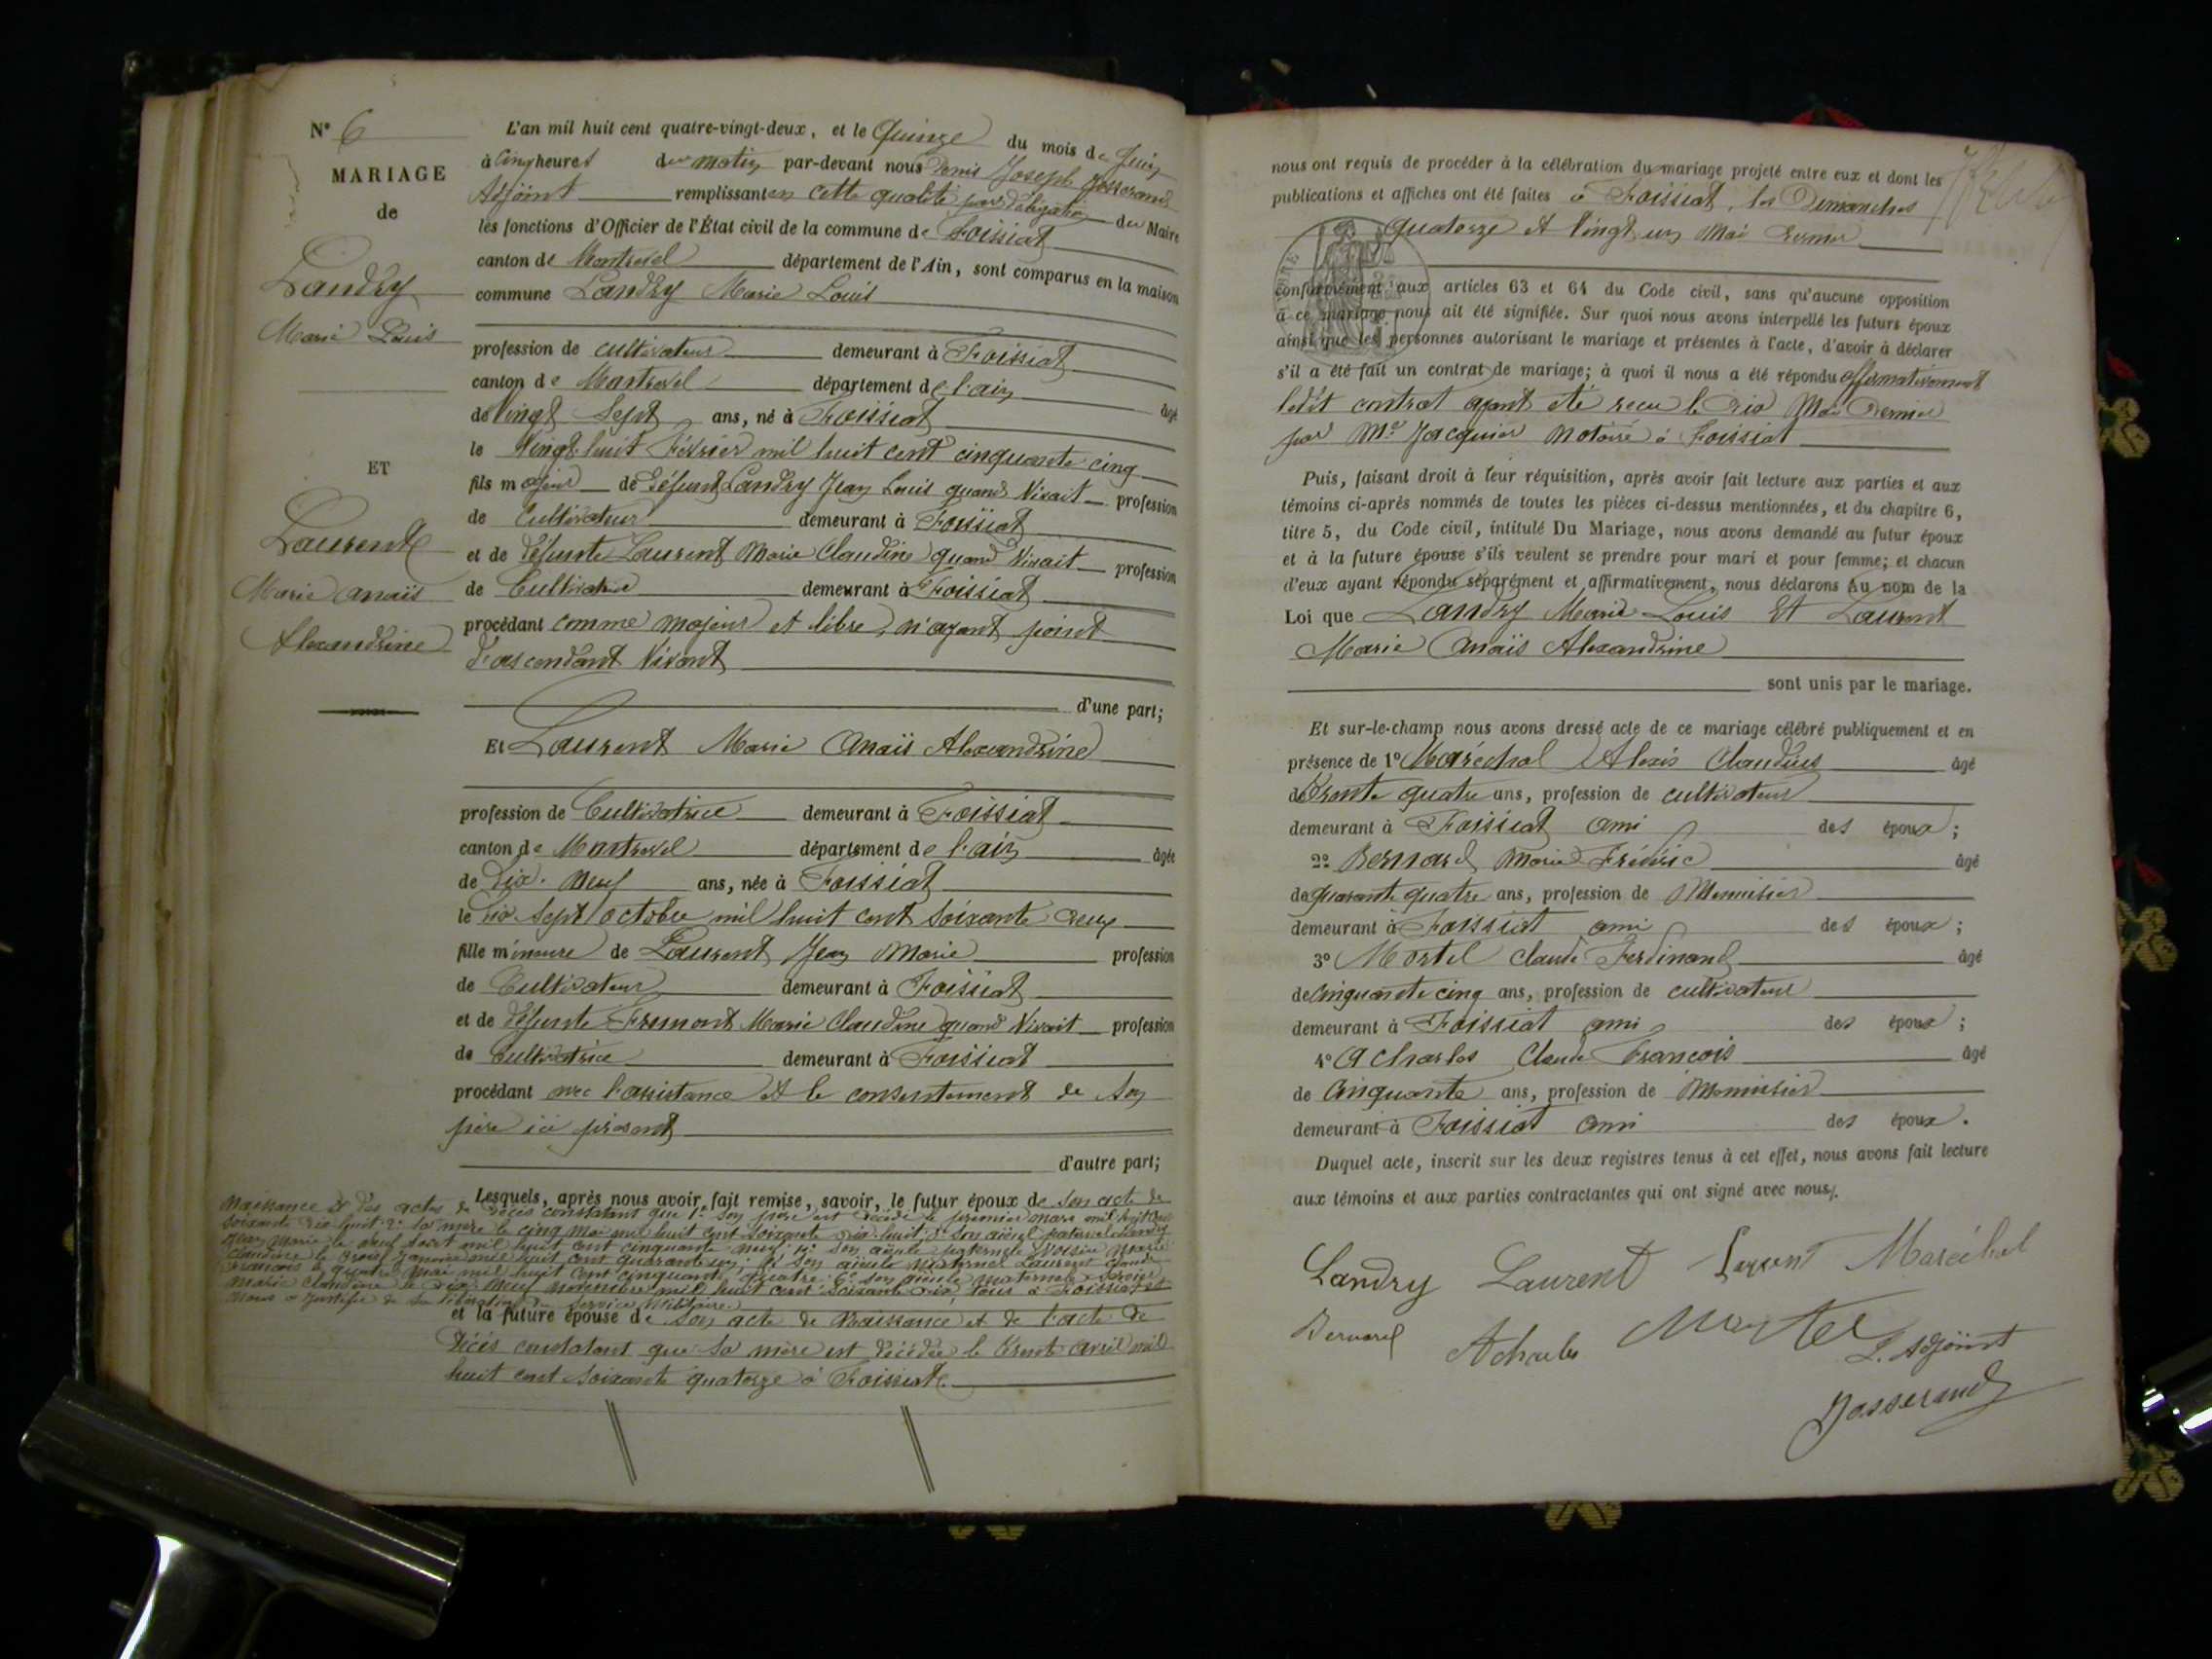 N° 6
MARIAGE
de
Landry
Marie Louis
ET
Laurent
Marie Anaïs
Alexandrine
L'an mil huit cent quatre-vingt-deux, et le Quinze du mois de Juin
à Cinq heures du matin par-devant nous Denis Joseph Josserand
Adjoint remplissant en cette qualité par délégation du Maire
les fonctions d'Officier de l'État civil de la commune de Foissiat
canton de Montrevel département de l'Ain, sont comparus en la maison
commune Landry Marie Louis
profession de cultivateur demeurant à Foissiat
canton de Montrevel département de l'ain âgé
de Vingt Sept ans, né à Foissiat
le Vingt huit Février mil huit cent cinquante cinq
fils majeur de défunt Landry Jean Louis quand Vivait profession
de Cultivateur demeurant à Foissiat
et de défunte Laurent Marie Claudine quand Vivait profession
de Cultivatrice demeurant à Foissiat
procédant comme majeur et libre, n'ayant point
d'ascendant Vivant
d'une part;
Et Laurent Marie Anaïs Alexandrine
profession de Cultivatrice demeurant à Foissiat
canton de Montrevel département de l'ain âgée
de Dix-Neuf ans, née à Foissiat
le dix Sept octobre mil huit cent soixante deux
fille mineure de Laurent Jean Marie profession
de Cultivateur demeurant à Foissiat
et de défunte Fremont Marie Claudine quand Vivait profession
de Cultivatrice demeurant à Foissiat
procédant avec l'assistance et le consentement de Son
père ici présent
d'autre part;
Lesquels, après nous avoir fait remise, savoir, le futur époux de Son acte de
Naissance & des actes de Décès constatant que 1° Son père est décédé le premier mars mil huit cent
soixante dix huit; 2° Sa mère le cinq Mai mil huit cent soixante dix huit; 3° Son aïeul paternel Landry
Jean Marie le neuf Aout mil huit cent cinquante neuf; 4° Son aïeule paternelle Voisin Marie
Claudine le trois Janvier mil huit cent quarante un; 5° Son aïeul maternel Laurent Claude
François le quatre Mai mil huit cent cinquante quatre; 6° Son aïeule maternelle
Marie Claudine le dix neuf novembre mil huit cent soixante dix, tous à Foissiat et
Nous a justifié de Sa libération du Service Militaire.
et la future épouse de Son acte de Naissance et de l'acte de
Décès constatant que Sa mère est décédée le trente avril mil
huit cent soixante quatorze à Foissiat.
nous ont requis de procéder à la célébration du mariage projeté entre eux et dont les
publications et affiches ont été faites à Foissiat, les Dimanches
quatorze et Vingt un Mai dernier
conformément aux articles 63 et 64 du Code civil, sans qu'aucune opposition
à ce mariage nous ait été signifiée. Sur quoi nous avons interpellé les futurs époux
ainsi que les personnes autorisant le mariage et présentes à l'acte, d'avoir à déclarer
s'il a été fait un contrat de mariage; à quoi il nous a été répondu affirmativement
ledit contrat ayant été recu le dix Mai Dernier
par Me Jacquier Notaire à Foissiat
Puis, faisant droit à leur réquisition, après avoir fait lecture aux parties et aux
témoins ci-après nommés de toutes les pièces ci-dessus mentionnées, et du chapitre 6,
titre 5, du Code civil, intitulé Du Mariage, nous avons demandé au futur époux
et à la future épouse s'ils veulent se prendre pour mari et pour femme; et chacun
d'eux ayant répondu séparément et affirmativement, nous déclarons au nom de la
Loi que Landry Marie Louis Et Laurent
Marie Anaïs Alexandrine
sont unis par le mariage.
Et sur-le-champ nous avons dressé acte de ce mariage célébré publiquement et en
présence de 1° Maréchal Alexis Claudius âgé
de Trente quatre ans, profession de cultivateur
demeurant à Foissiat ami des époux;
2° Bernard Marie Frédéric âgé
de quarante quatre ans, profession de Menuisier
demeurant à Foissiat ami des époux;
3° Mortel Claude Ferdinand âgé
de cinquante cinq ans, profession de cultivateur
demeurant à Foissiat ami des époux;
4° Acharles Claude François âgé
de Cinquante ans, profession de Menuisier
demeurant à Foissiat ami des époux.
Duquel acte, inscrit sur les deux registres tenus à cet effet, nous avons fait lecture
aux témoins et aux parties contractantes qui ont signé avec nous.
Landry Laurent Maréchal
Bernard Acharles Mortel
L. Adjoint
Josserand